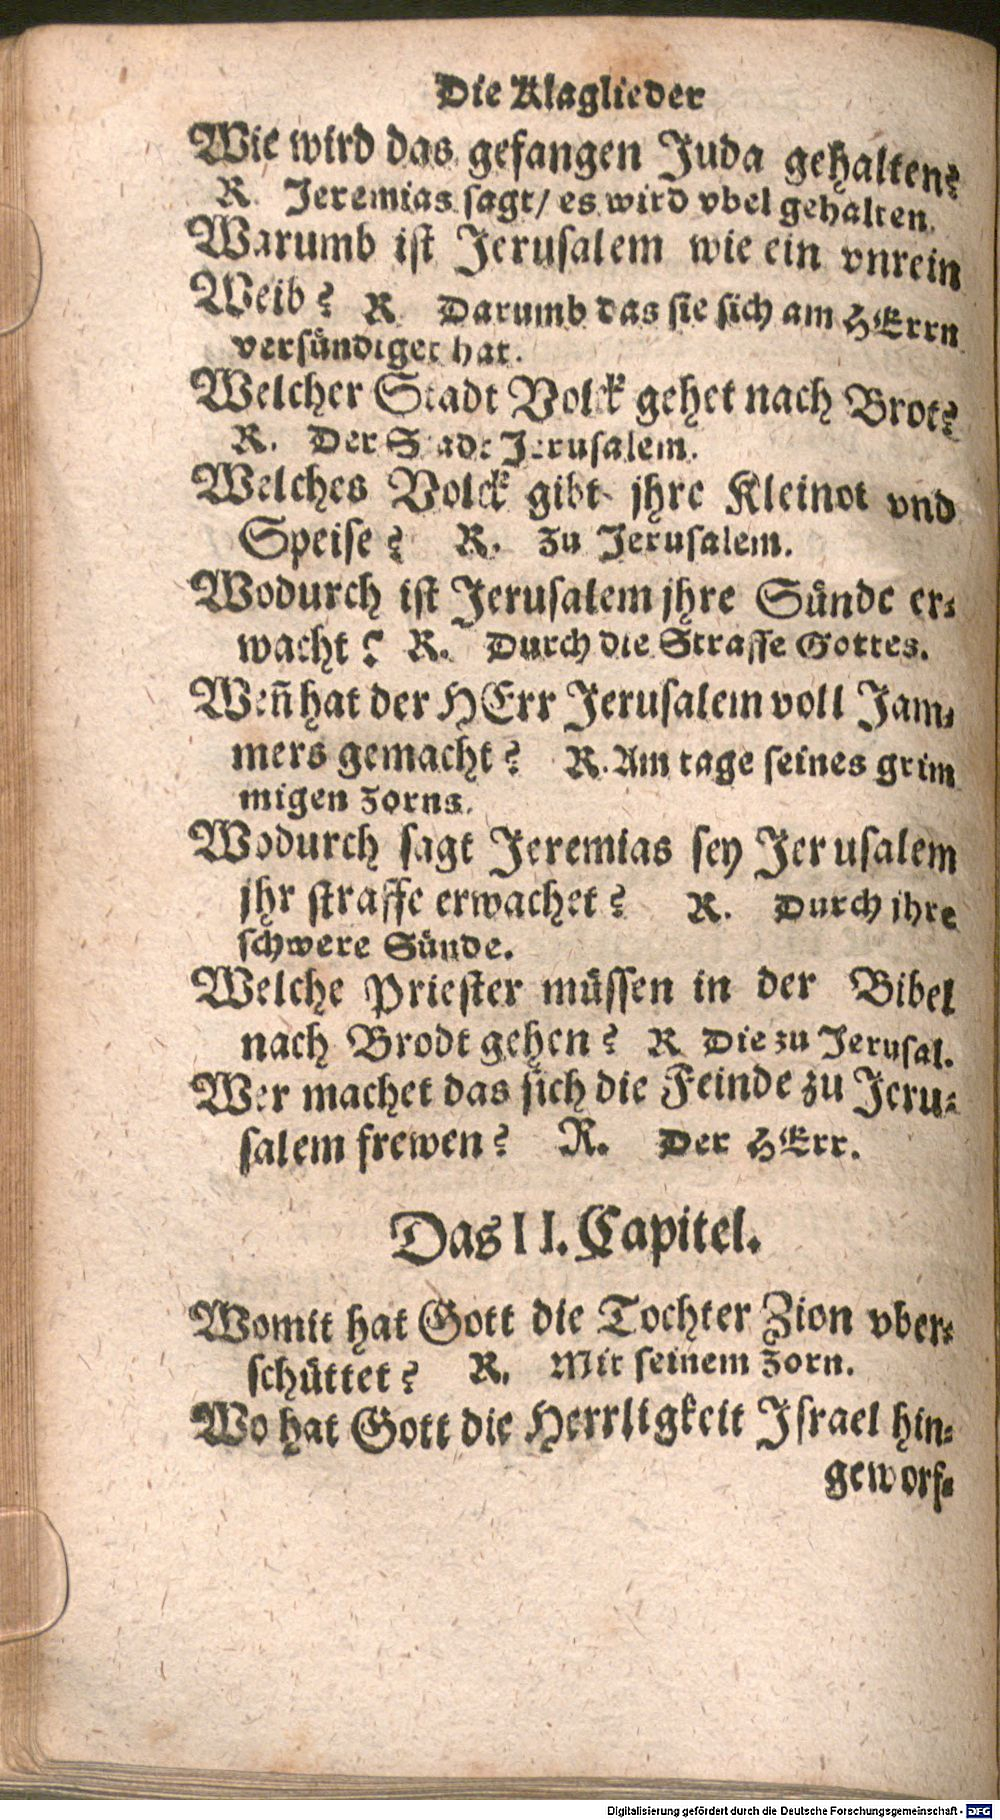 Die Klaglieder
Wie wird das gefangen Juda gehalten?
R. Jeremias sagt/ es wird vbel gehalten.
Warumb ist Jerusalem wie ein vnrein
Weib? R. Darumb das sie sich am HErrn
versündiget hat.
Welcher Stadt Volck gehet nach Brot?
R. Der Stadt Jerusalem.
Welches Volck gibt jhre Kleinot vnd
Speise? R. zu Jerusalem.
Wodurch ist Jerusalem jhre Sünde er-
wacht? R. Durch die Straffe Gottes.
Weñ hat der HErr Jerusalem voll Jam-
mers gemacht? R. Am tage seines grim
migen zorns.
Wodurch sagt Jeremias sey Jerusalem
jhr straffe erwachet? R. Durch jhre
schwere Sünde.
Welche Priester müssen in der Bibel
nach Brodt gehen? R Die zu Jerusal.
Wer machet das sich die Feinde zu Jeru-
salem frewen? R. Der HErr.
Das II. Capitel.
Womit hat Gott die Tochter Zion vber-
schüttet? R. Mit seinem Zorn.
Wo hat Gott die Herrligkeit Israel hin-
geworf-
Digitalisierung gefördert durch die Deutsche Forschungsgemeinschaft - DFG